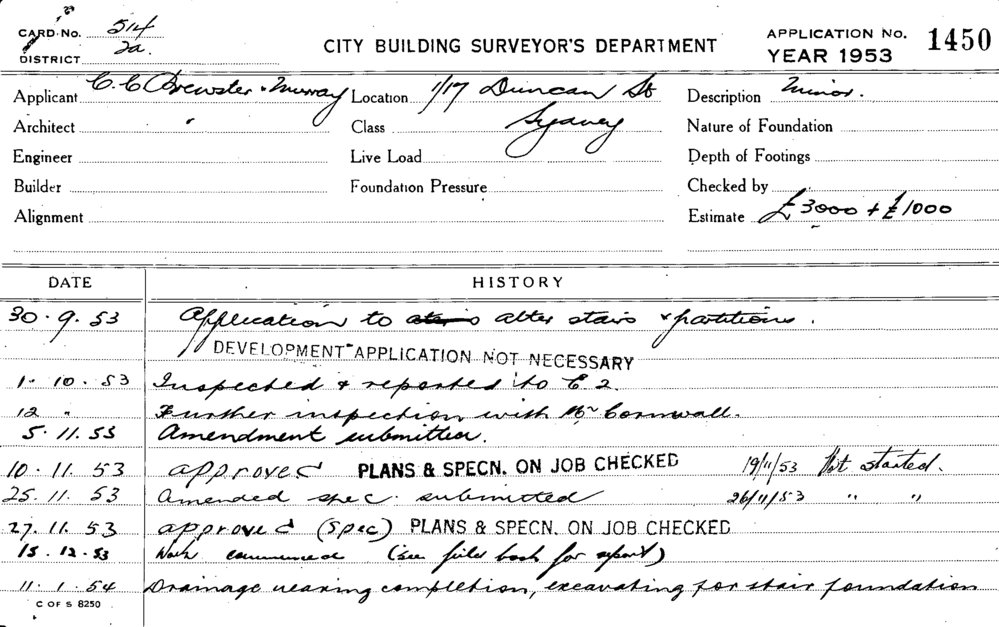 CARD No. 514
DISTRICT 2a.
CITY BUILDING SURVEYOR'S DEPARTMENT
APPLICATION No. 1450
YEAR 1953
Applicant C. C Brewster & Murray Location 1/17 Duncan St Description Minor.
Architect Class Sydney Nature of Foundation
Engineer Live Load Depth of Footings
Builder Foundation Pressure Checked by
Alignment Estimate £3000 + £1000
DATE HISTORY
30.9.53 Application to alter stairs & partitions.
DEVELOPMENT APPLICATION NOT NECESSARY
1.10.53 Inspected & reported to C 2.
12 " Further inspection with Mr Cornwall.
5.11.53 Amendment submitted.
10.11.53 approved PLANS & SPECN. ON JOB CHECKED 19/11/53 Not started.
25.11.53 Amended spec. submitted 26/11/53 " "
27.11.53 approved (spec) PLANS & SPECN. ON JOB CHECKED
15.12.53 Work commenced (see field book for report)
11.1.54 Drainage nearing completion, excavating for stair foundation
C OF S 8250